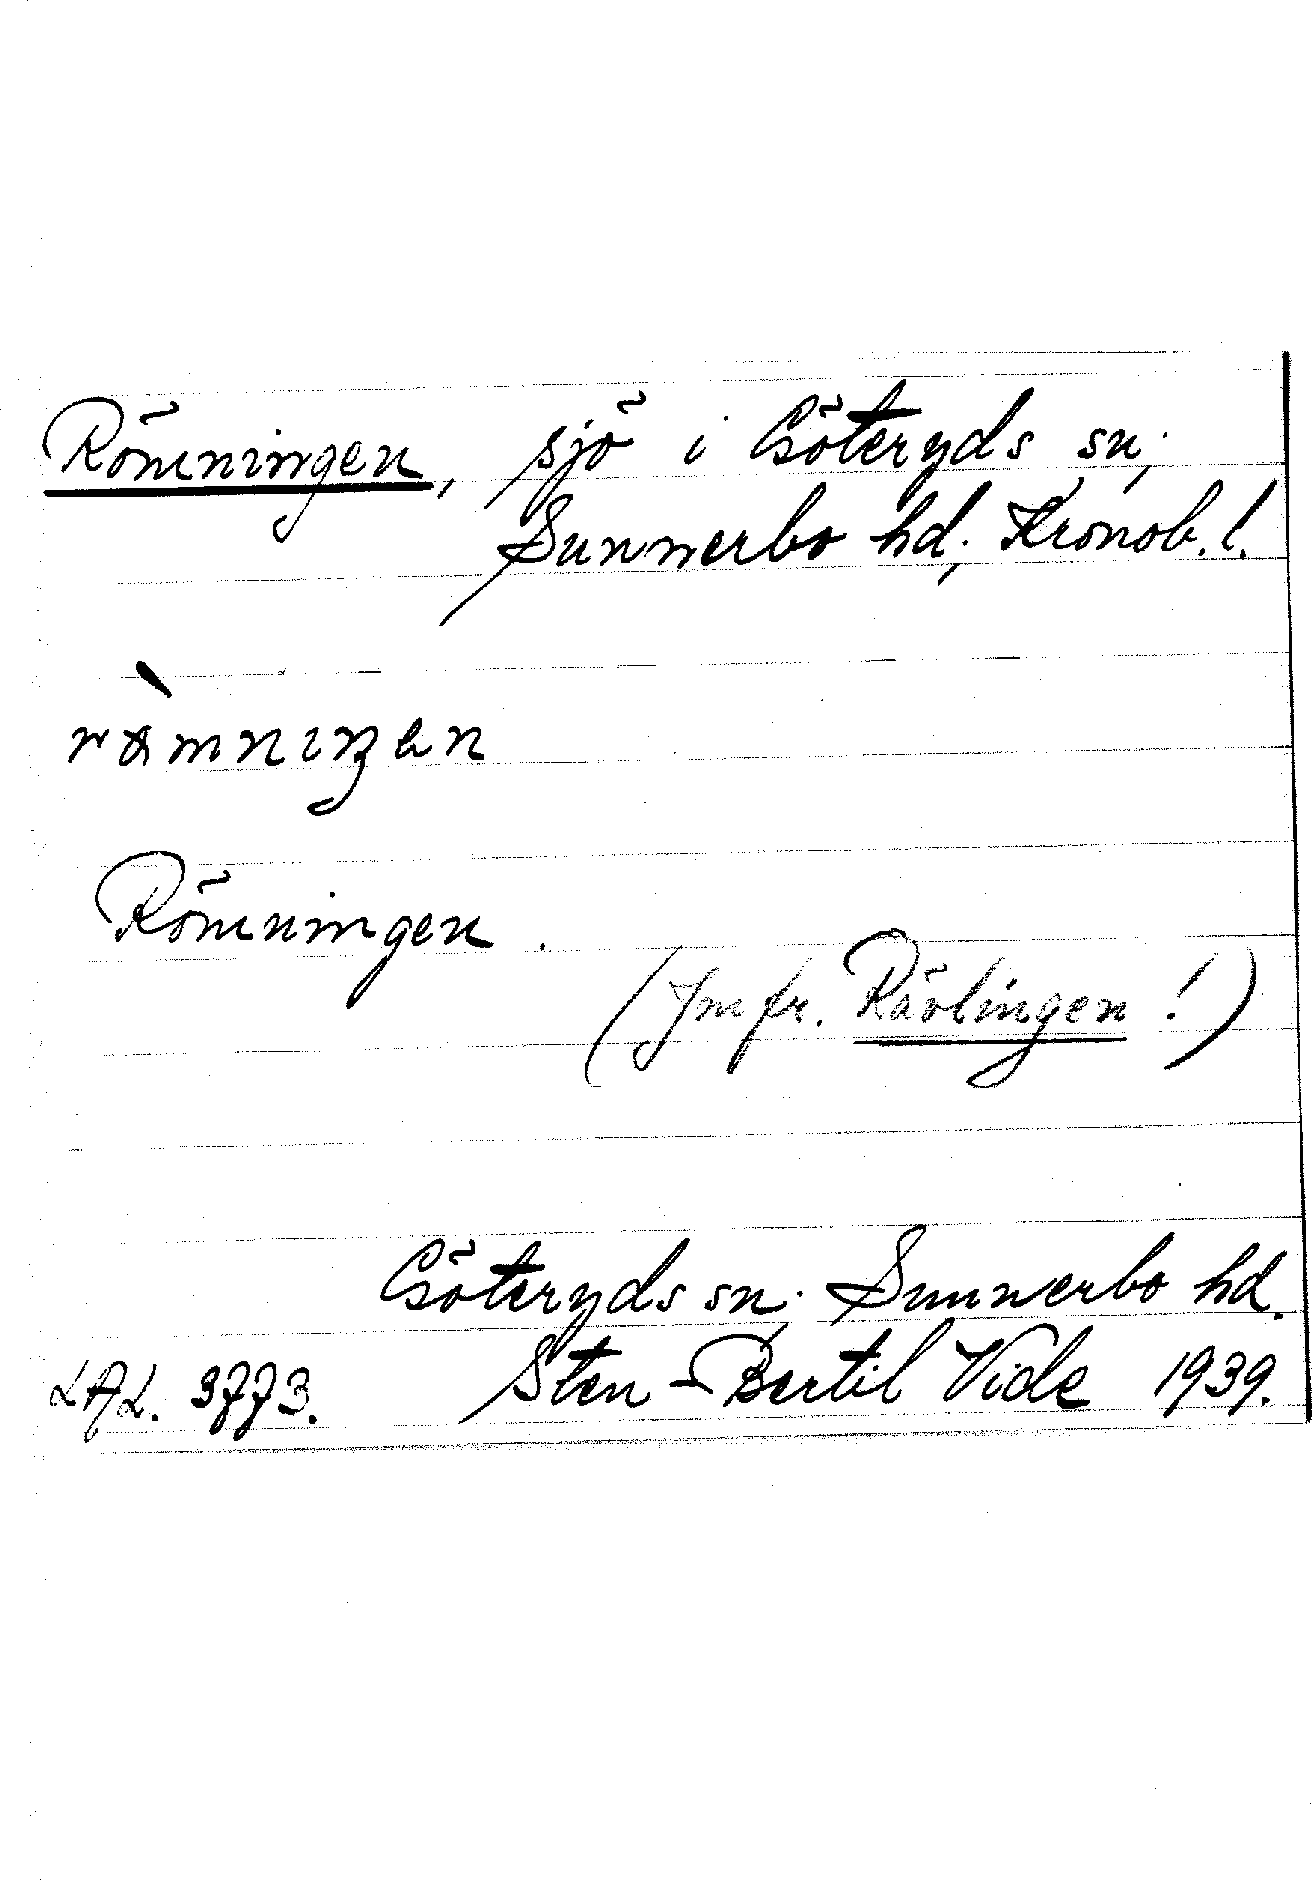 Römningen, sjö i Göteryds sn;
Sunnerbo hd; Kronob. l.
Römningen.
(Jmfr. Rävlingen!)
Göteryds sn; Sunnerbo hd.
LAL. 3773. Sten-Bertil Vide 1939.